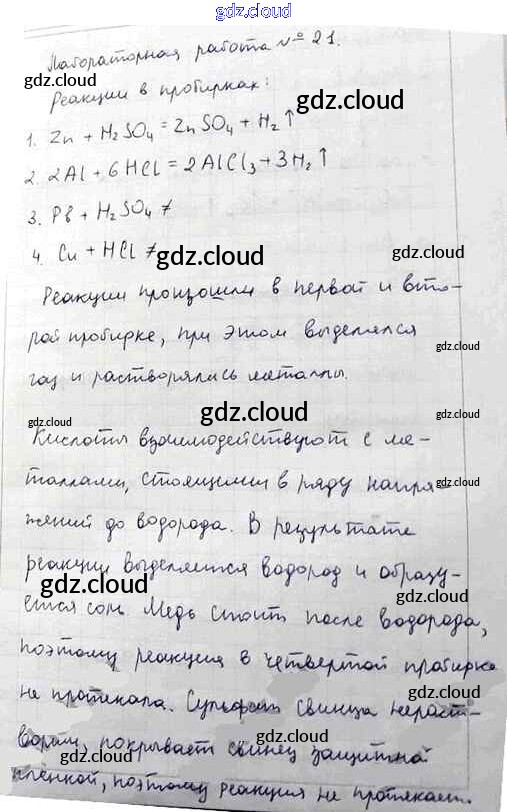 gdz.cloud
Лабораторная работа № 21.
gdz.cloud
Реакции в пробирках:
gdz.cloud
1. Zn + H₂SO₄ = ZnSO₄ + H₂↑
gdz.cloud
2. 2Al + 6HCl = 2AlCl₃ + 3H₂↑
3. Pb + H₂SO₄ ≠
4. Cu + HCl ≠
gdz.cloud
gdz.cloud
Реакции произошли в первой и вто-
рой пробирке, при этом выделялся
gdz.cloud
газ и растворялись металлы.
gdz.cloud
gdz.cloud
gdz.cloud
Кислоты взаимодействуют с ме-
таллами, стоящими в ряду напря-
gdz.cloud
жений до водорода. В результате
реакции выделяется водород и образу-
gdz.cloud
gdz.cloud
ется соль. Медь стоит после водорода,
поэтому реакция в четвертой пробирке
не протекала. Сульфат свинца нераст-
gdz.cloud
ворим, покрывает свинец защитной
gdz.cloud
gdz.cloud
плёнкой, поэтому реакция не протекает.